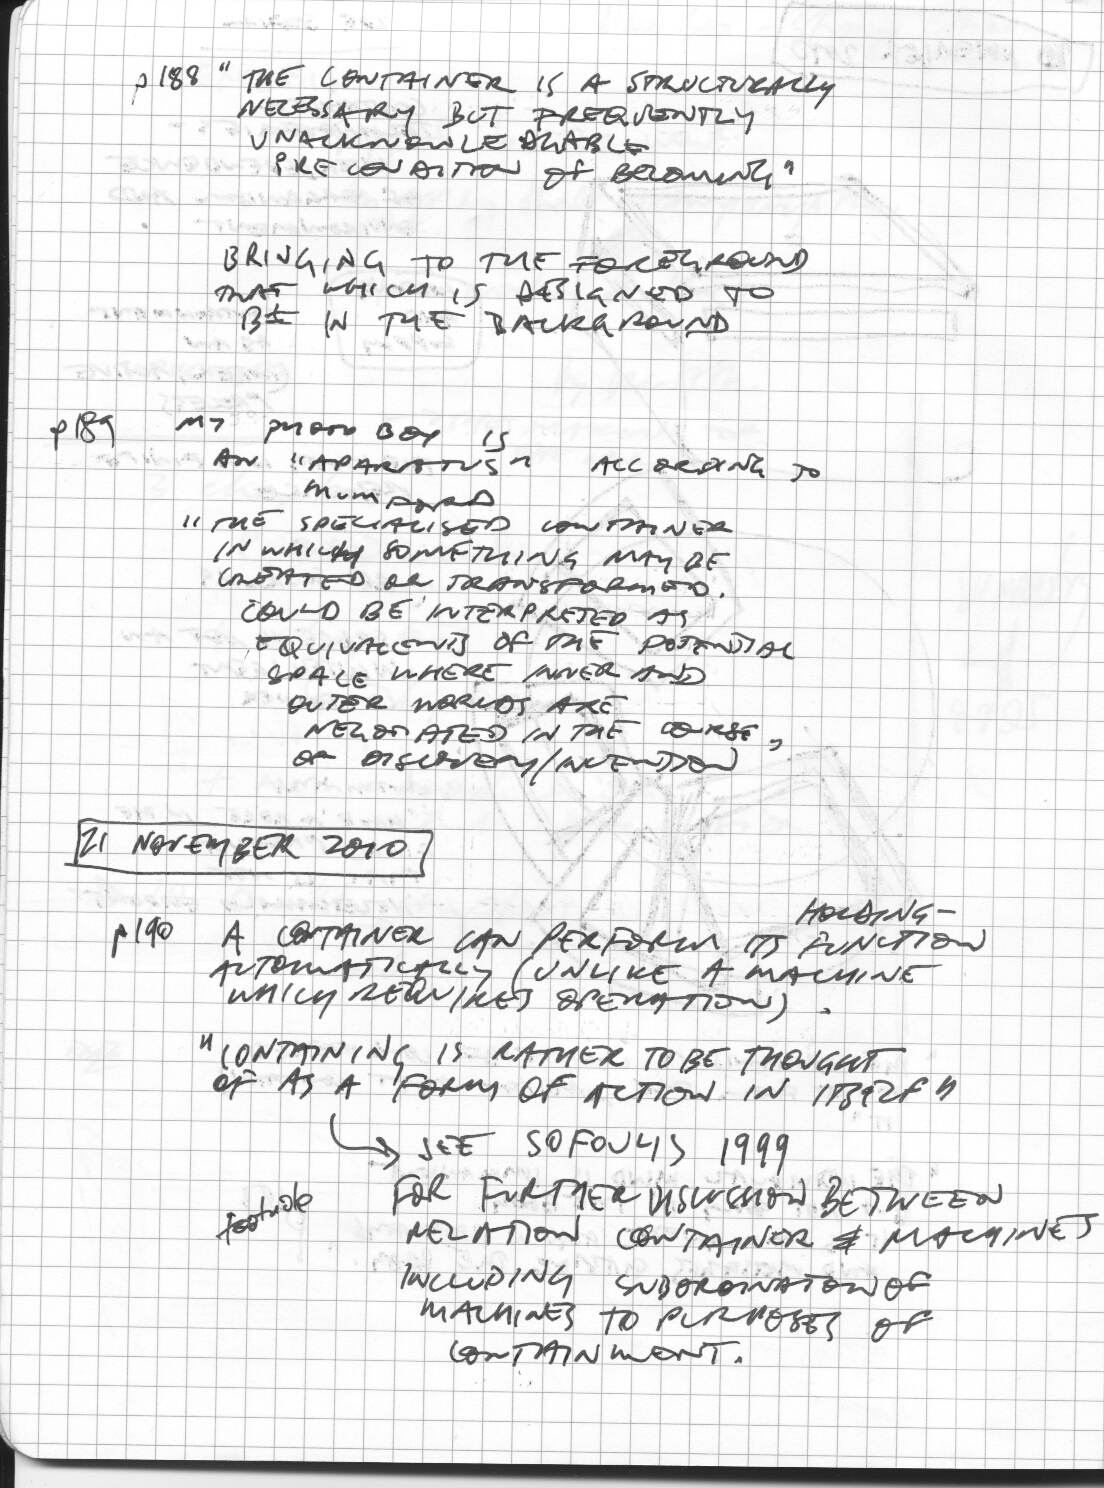 p188 " THE CONTAINER IS A STRUCTURALLY
NECESSARY BUT FREQUENTLY
UNACKNOWLEDGABLE
PRECONDITION OF BECOMING"
BRINGING TO THE FOREGROUND
THAT WHICH IS DESIGNED TO
BE IN THE BACKGROUND
p189 MY PHOTO BOX IS
AN "APARATUS" ACCORDING TO
MUMFORD
"THE SPECIALISED CONTAINER
IN WHICH SOMETHING MAY BE
CREATED OR TRANSFORMED.
COULD BE INTERPRETED AS
EQUIVALENTS OF THE POTENTIAL
SPACE WHERE INNER AND
OUTER WORLDS ARE
NEGOTIATED IN THE COURSE,
OF DISCOVERY/INVENTION
21 NOVEMBER 2010
HOLDING-
p190 A CONTAINER CAN PERFORM ITS FUNCTION
AUTOMATICALLY (UNLIKE A MACHINE
WHICH REQUIRES OPERATION).
"CONTAINING IS RATHER TO BE THOUGHT
OF AS A FORM OF ACTION IN ITSELF"
SEE SOFOULIS 1999
footnote FOR FURTHER DISCUSSION BETWEEN
RELATION CONTAINER & MACHINES
INCLUDING SUBORDINATION OF
MACHINES TO PURPOSES OF
CONTAINMENT.